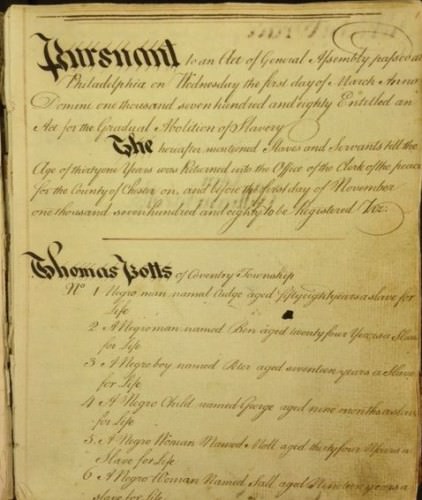 Pursuant to an Act of General Assembly passed at
Philadelphia on Wednesday the first day of March Anno
Domini one thousand seven hundred and eighty Entitled an
Act for the Gradual Abolition of Slavery
The hereafter mentioned Slaves and Servants till the
Age of thirty one Years was Returned into the Office of the Clerk of the peace
for the County of Chester on, and before the first day of November
one thousand seven hundred and eighty to be Registered Viz:
Thomas Potts of Coventry Township
No 1 Negro man named Cudge aged fifty eight years a slave for
Life
2 A Negro man named Ben aged twenty four Years a Slave
for Life
3 A Negro boy named Peter aged seventeen years a Slave
for Life
4 A Negro Child named George aged nine months a slave
for Life
5 A Negro Woman Named Moll aged thirty four Years a
Slave for Life
6 A Negro Woman Named Sall aged Nineteen years a
Slave for Life